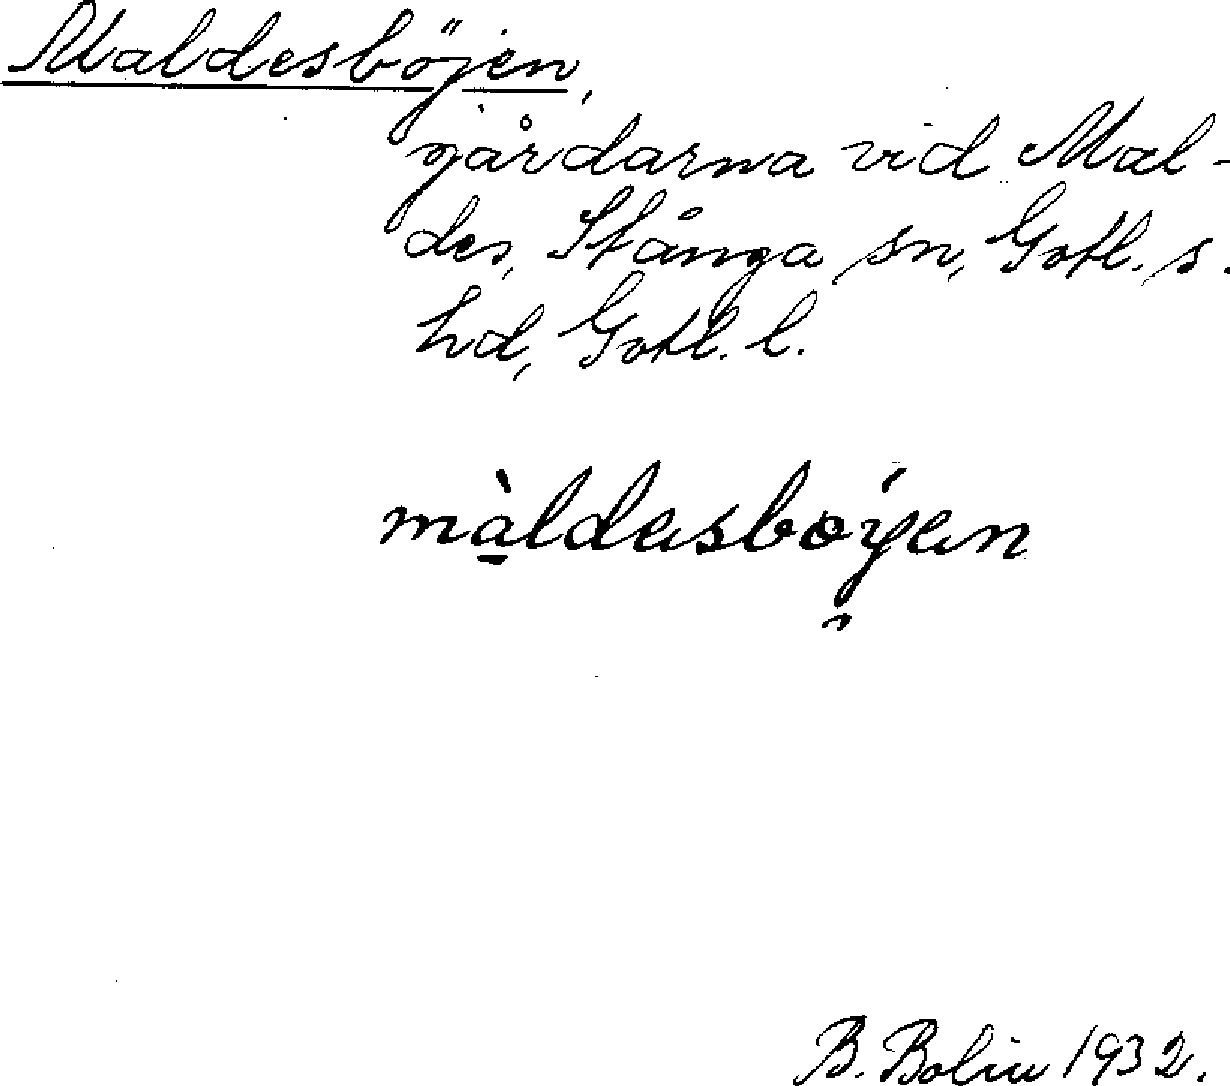 Maldesböjen,
gårdarna vid Mal-
des, Stånga sn, Gotl. s.
hd, Gotl. l.
màldesboyen
B. Bolin 1932.